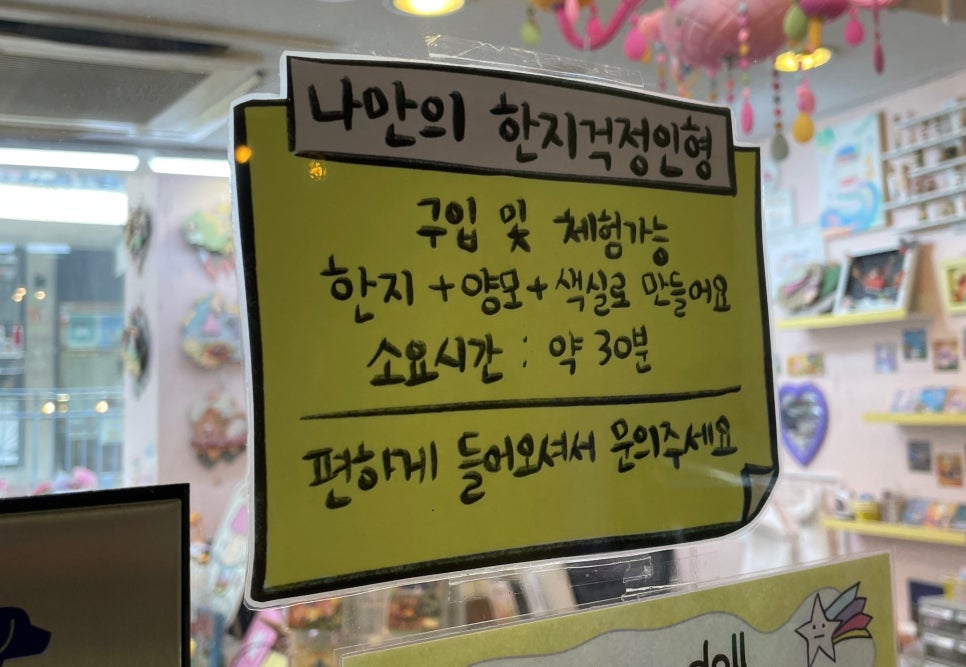 나만의 한지걱정인형
구입 및 체험가능
한지+양모+색실로 만들어요
소요시간 : 약 30분
편하게 들어오셔서 문의주세요
doll